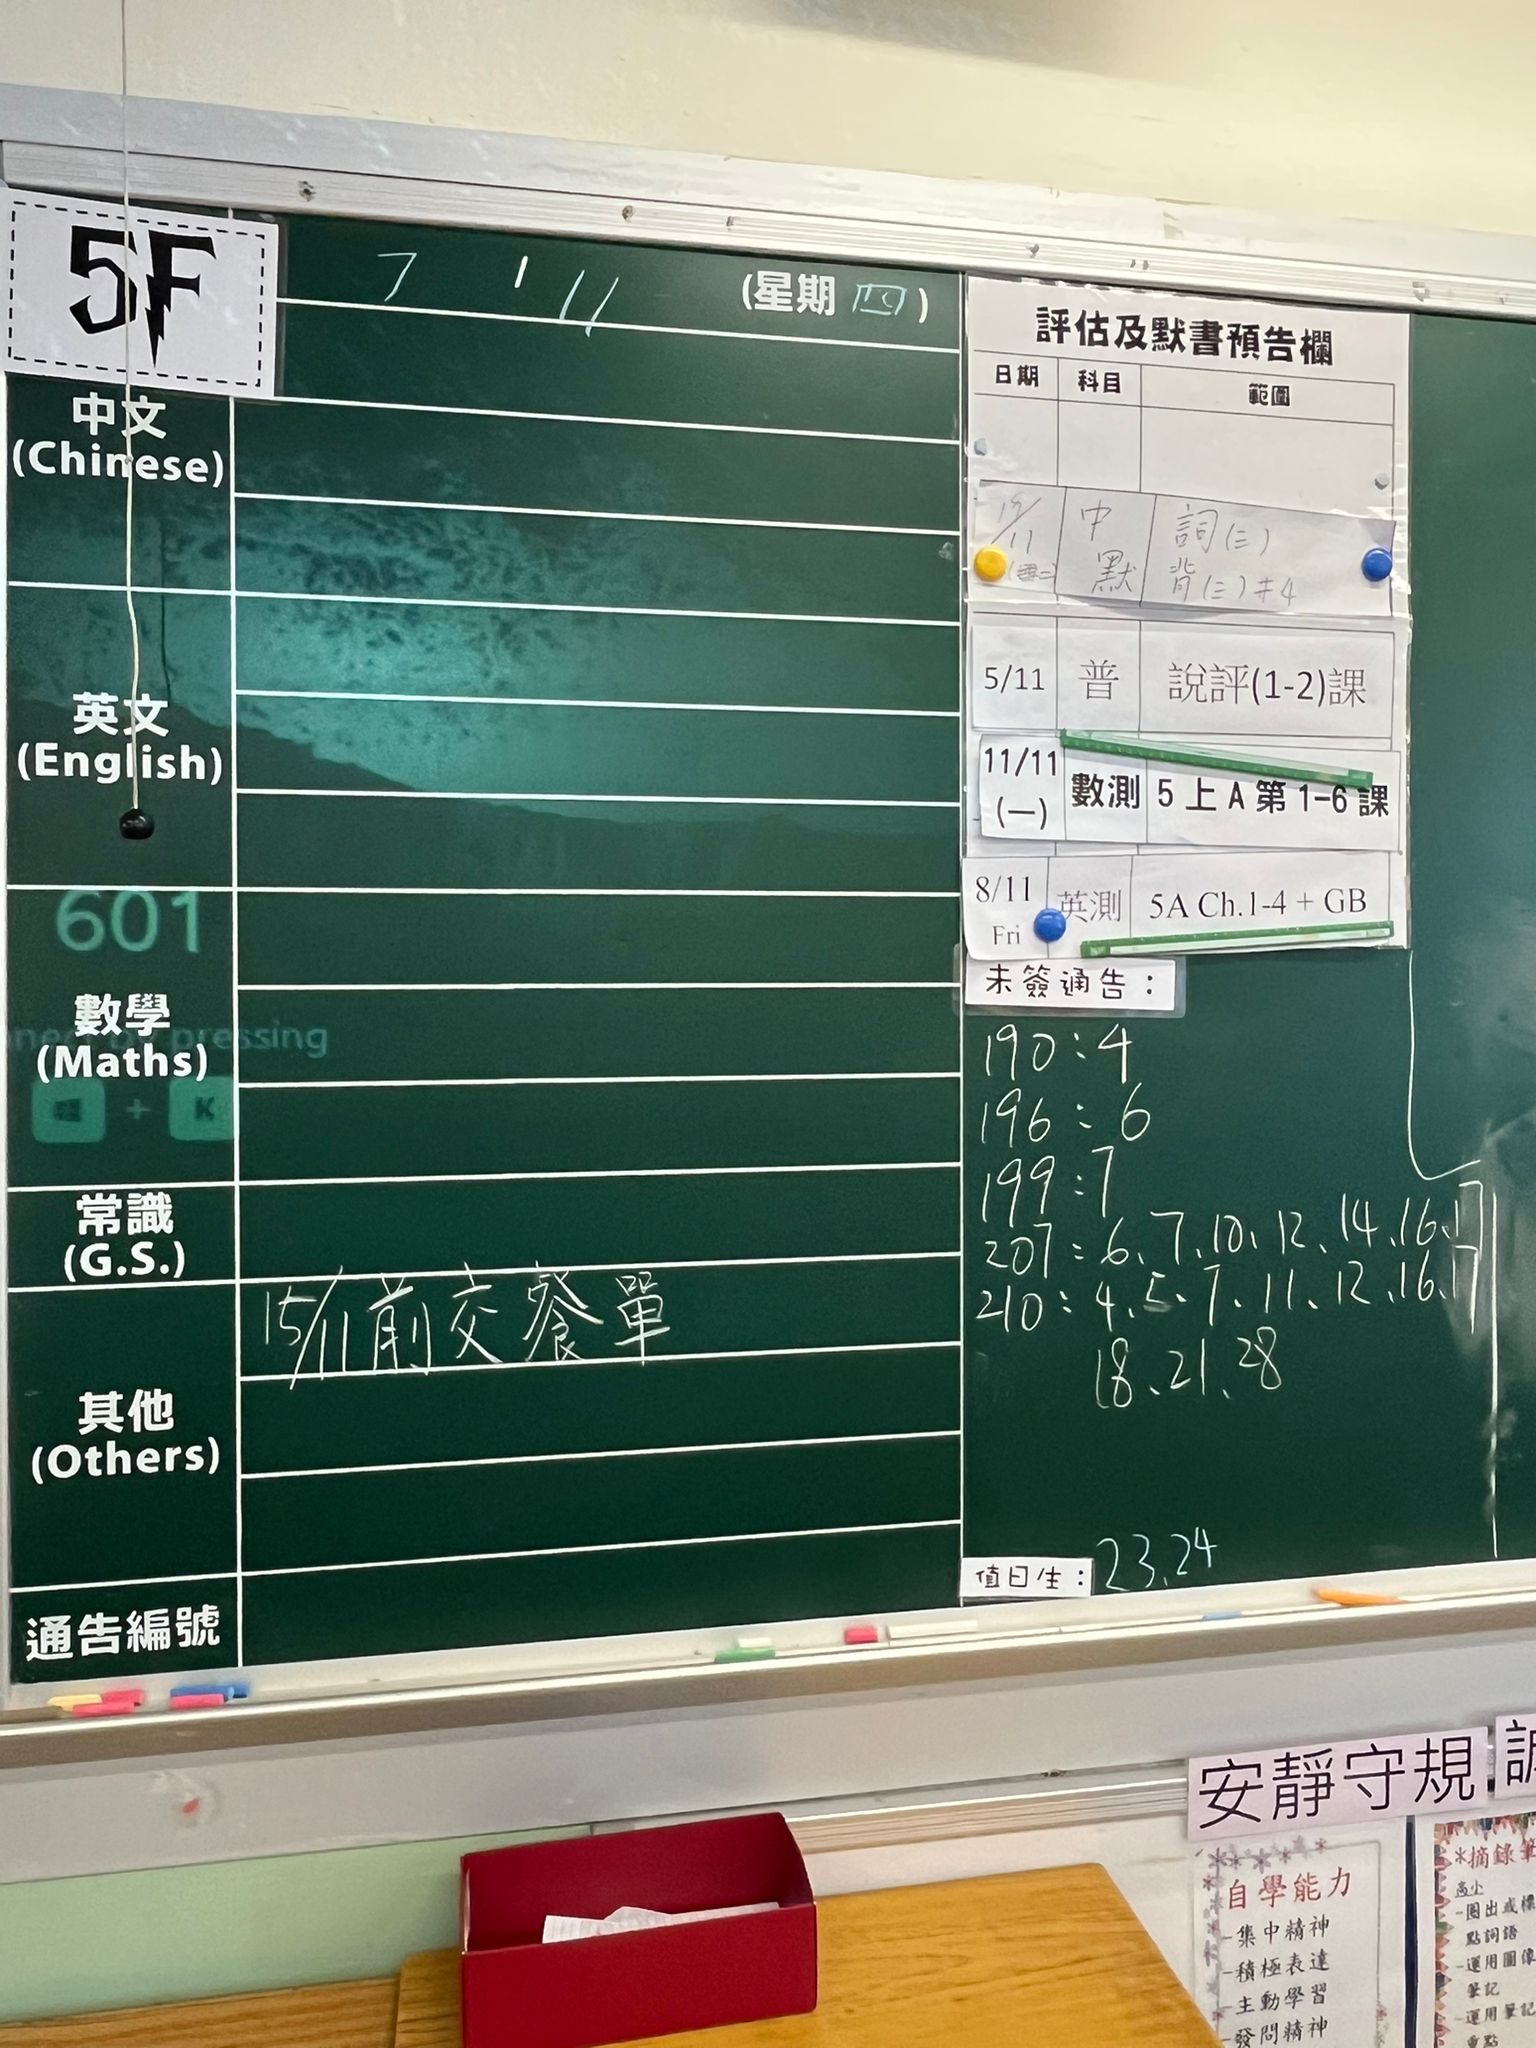 5F
7 / 11 (星期 四)
中文
(Chinese)
英文
(English)
601
數學
pressing
(Maths)
+ K
常識
(G.S.)
15/11前交餐單
其他
(Others)
通告編號
評估及默書預告欄
日期 科目 範圍
19/11 中 詞(三)
(二) 默 背(三)#4
5/11 普 說評(1-2)課
11/11
(一) 數測 5上A第1-6課
8/11
Fri 英測 5A Ch.1-4 + GB
未簽通告：
190：4
196：6
199：7
207：6、7、10、12、14、16、17
210：4、5、7、11、12、16、17
18、21、28
值日生： 23、24
安靜守規
自學能力
-集中精神
-積極表達
-主動學習
-發問精神
*摘錄筆
高小
-圈出或標
點詞語
-運用圖像
筆記
-運用筆記
重點